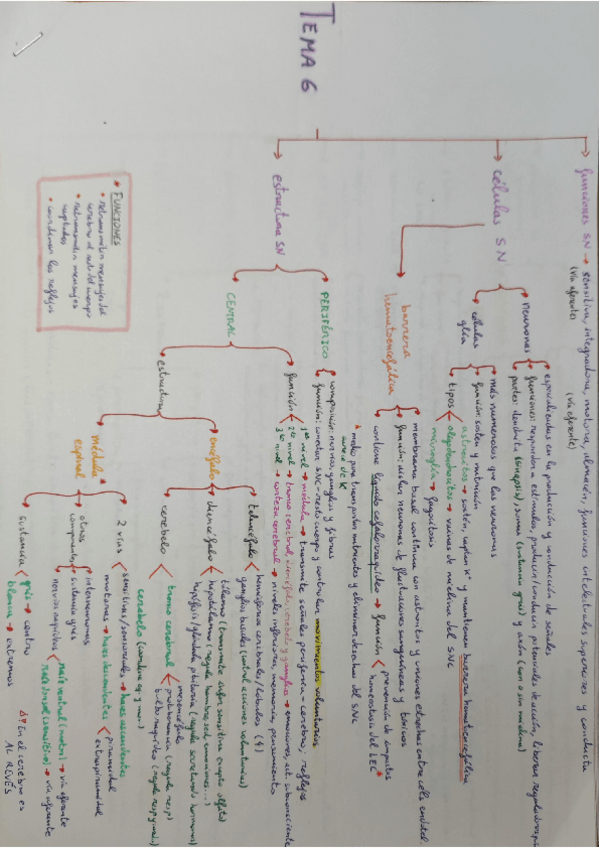 TEMA 6
funciones SN → sensitiva, integradora, motora, almacén, funciones intelectuales superiores y conducta
(vía aferente) (vía eferente)
células SN
neuronas
especializadas en la producción y conducción de señales
funciones: responder a estímulos, producir/conducir potenciales de acción, liberar
partes: dendrita (sinapsis), soma (sustancia gris) y axón (con o sin mielina)
células glía
más numerosas que las neuronas
función: sostén y nutrición
tipos
astrocitos → sostén, captan K+ y mantienen barrera hematoencefálica
oligodendrocitos → vainas de mielina del SNC
microglía → fagocitosis
barrera hematoencefálica
membrana basal continua con astrocitos y uniones estrechas entre céls endotel
función: aislar neuronas de fluctuaciones sanguíneas y tóxicos
contiene líquido cefalorraquídeo → función
prevención de impactos
homeostasis del LEC
medio para transportar nutrientes y eliminar desechos del SNC
estructura SN
PERIFÉRICO
composición: nervios, ganglios y fibras
función: conectar SNC-resto cuerpo y controlar movimientos voluntarios
CENTRAL
función
1er nivel → médula → transmite señales periferia-cerebro, reflejos
2do nivel → tronco cerebral, diencéfalo, cerebelo y ganglios → emociones, act. subconsciente
3er nivel → corteza cerebral → niveles inferiores, memoria, pensamiento
estructura
encéfalo
telencéfalo
hemisferios cerebrales/lóbulos (4)
ganglios basales (control acciones voluntarias)
diencéfalo
tálamo (transmite infor sensitiva excepto olfato)
hipotálamo (regula hambre, sed, emociones...)
hipófisis/glándula pituitaria (regula secretando hormonas)
cerebelo
tronco cerebral
mesencéfalo
protuberancia (regula resp)
bulbo raquídeo (regula resp y más)
cerebelo (controla eq. y mov)
médula espinal
2 vías
sensitivas/sensoriales → haces ascendentes
motoras → haces descendentes
piramidal
extrapiramidal
otros componentes
interneuronas
sustancia gris
nervios raquídeos
raíz ventral (motor) → vía eferente
raíz dorsal (sensitivo) → vía aferente
sustancia
gris → centro
blanca → extremos
En el cerebro es AL REVÉS
• FUNCIONES
• retransmitir mensajes del cerebro al resto del cuerpo
• retransmitir mensajes captados
• coordinar los reflejos